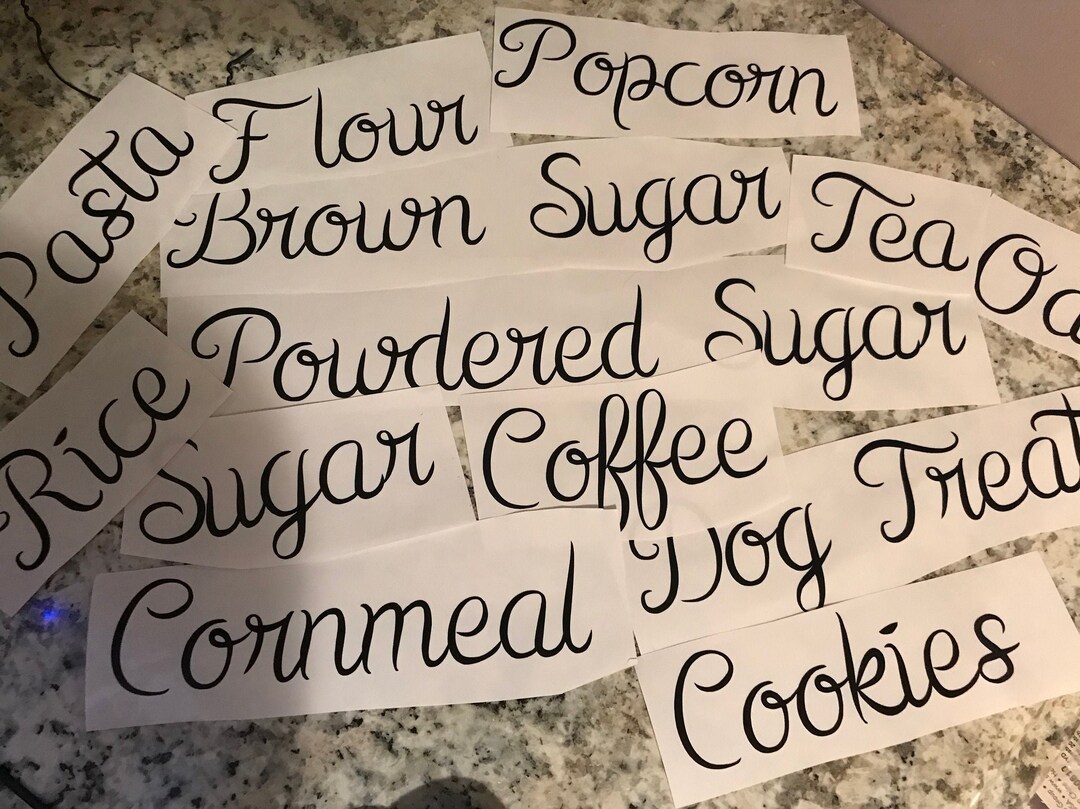 Popcorn
Flour
Pasta
Brown Sugar
Tea
Powdered Sugar
Rice
Sugar
Coffee
Dog Treat
Cornmeal
Cookies